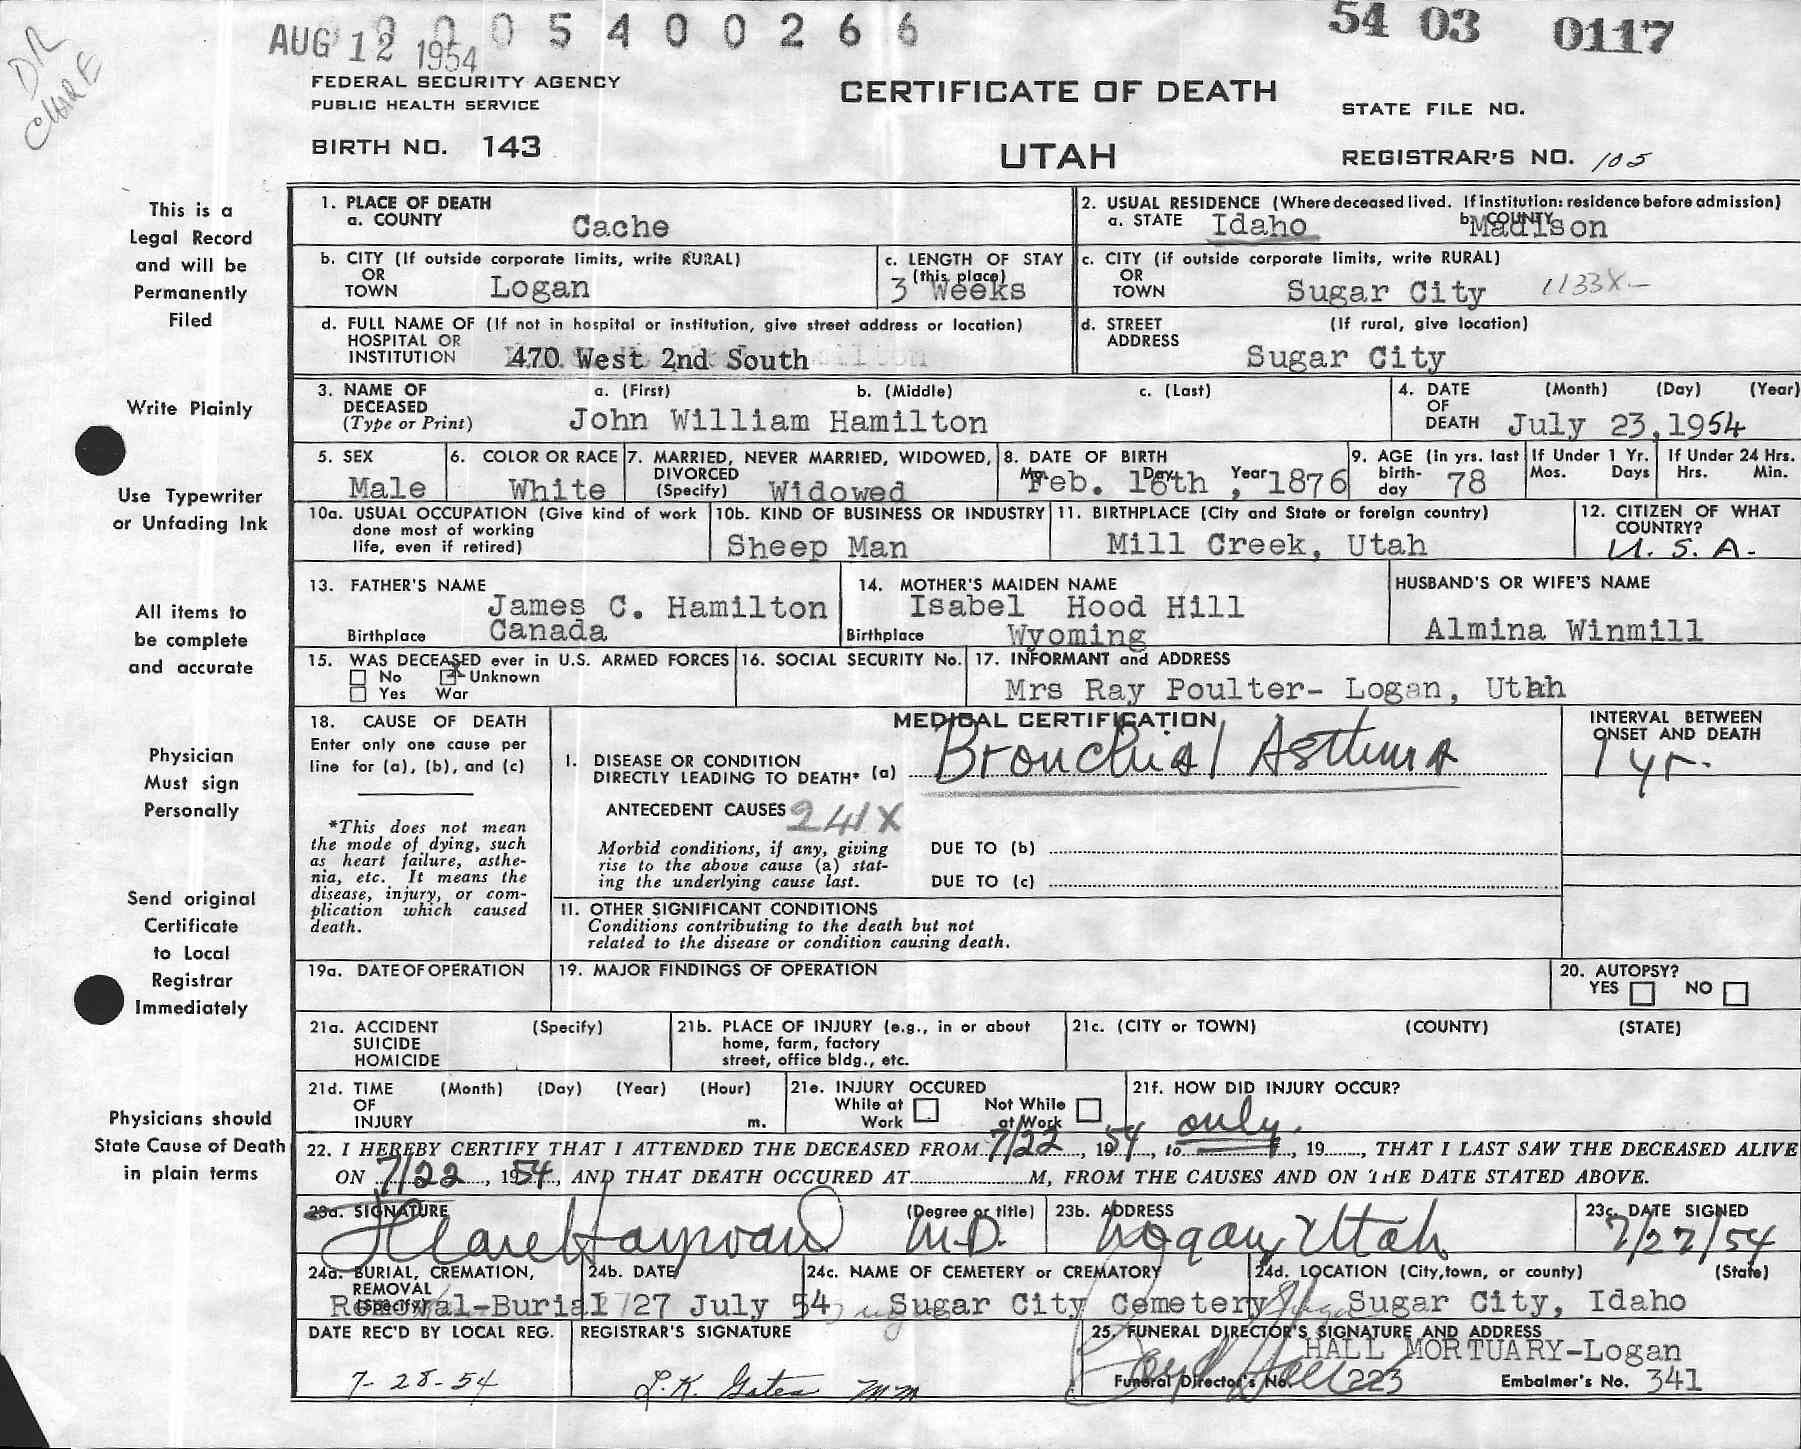 DR
CLARE
AUG 12 1954 0 0 5 4 0 0 2 6 6
54 03 0117
FEDERAL SECURITY AGENCY
PUBLIC HEALTH SERVICE
CERTIFICATE OF DEATH
STATE FILE NO.
BIRTH NO. 143
UTAH
REGISTRAR'S NO. 105
This is a
Legal Record
and will be
Permanently
Filed
Write Plainly
Use Typewriter
or Unfading Ink
All items to
be complete
and accurate
Physician
Must sign
Personally
Send original
Certificate
to Local
Registrar
Immediately
Physicians should
State Cause of Death
in plain terms
1. PLACE OF DEATH
a. COUNTY Cache
2. USUAL RESIDENCE (Where deceased lived. If institution: residence before admission)
a. STATE Idaho b. COUNTY Madison
b. CITY (If outside corporate limits, write RURAL)
OR
TOWN Logan
c. LENGTH OF STAY
(this place)
3 Weeks
c. CITY (if outside corporate limits, write RURAL)
OR
TOWN Sugar City 1133X-
d. FULL NAME OF (If not in hospital or institution, give street address or location)
HOSPITAL OR
INSTITUTION 470 West 2nd South
d. STREET (If rural, give location)
ADDRESS
Sugar City
3. NAME OF a. (First) b. (Middle) c. (Last)
DECEASED
(Type or Print) John William Hamilton
4. DATE (Month) (Day) (Year)
OF
DEATH July 23, 1954
5. SEX
Male
6. COLOR OR RACE
White
7. MARRIED, NEVER MARRIED, WIDOWED,
DIVORCED
(Specify) Widowed
8. DATE OF BIRTH
Mo. Day Year
Feb. 16th, 1876
9. AGE (in yrs. last
birth-
day 78
If Under 1 Yr.
Mos. Days
If Under 24 Hrs.
Hrs. Min.
10a. USUAL OCCUPATION (Give kind of work
done most of working
life, even if retired)
10b. KIND OF BUSINESS OR INDUSTRY
Sheep Man
11. BIRTHPLACE (City and State or foreign country)
Mill Creek, Utah
12. CITIZEN OF WHAT
COUNTRY?
U. S. A.
13. FATHER'S NAME
James C. Hamilton
Birthplace Canada
14. MOTHER'S MAIDEN NAME
Isabel Hood Hill
Birthplace Wyoming
HUSBAND'S OR WIFE'S NAME
Almina Winmill
15. WAS DECEASED ever in U.S. ARMED FORCES
No Unknown
Yes War
16. SOCIAL SECURITY No.
17. INFORMANT and ADDRESS
Mrs Ray Poulter- Logan, Utah
18. CAUSE OF DEATH
Enter only one cause per
line for (a), (b), and (c)
*This does not mean
the mode of dying, such
as heart failure, asthe-
nia, etc. It means the
disease, injury, or com-
plication which caused
death.
MEDICAL CERTIFICATION
I. DISEASE OR CONDITION
DIRECTLY LEADING TO DEATH* (a) Bronchial Asthma
INTERVAL BETWEEN
ONSET AND DEATH
1 yr.
ANTECEDENT CAUSES 241X
Morbid conditions, if any, giving
rise to the above cause (a) stat-
ing the underlying cause last.
DUE TO (b)
DUE TO (c)
II. OTHER SIGNIFICANT CONDITIONS
Conditions contributing to the death but not
related to the disease or condition causing death.
19a. DATE OF OPERATION
19. MAJOR FINDINGS OF OPERATION
20. AUTOPSY?
YES NO
21a. ACCIDENT (Specify)
SUICIDE
HOMICIDE
21b. PLACE OF INJURY (e.g., in or about
home, farm, factory
street, office bldg., etc.
21c. (CITY or TOWN) (COUNTY) (STATE)
21d. TIME (Month) (Day) (Year) (Hour)
OF
INJURY m.
21e. INJURY OCCURED
While at Work Not While at Work
21f. HOW DID INJURY OCCUR?
22. I HEREBY CERTIFY THAT I ATTENDED THE DECEASED FROM 7/22, 1954, to only, 19, THAT I LAST SAW THE DECEASED ALIVE
ON 7/22, 1954, AND THAT DEATH OCCURED AT M, FROM THE CAUSES AND ON THE DATE STATED ABOVE.
23a. SIGNATURE (Degree or title)
J Clare Hayward M.D.
23b. ADDRESS
Logan, Utah
23c. DATE SIGNED
7/27/54
24a. BURIAL, CREMATION,
REMOVAL
(Specify)
Removal-Burial
24b. DATE
27 July 54
24c. NAME OF CEMETERY or CREMATORY
Sugar City Cemetery
24d. LOCATION (City, town, or county) (State)
Sugar City, Idaho
DATE REC'D BY LOCAL REG.
7-28-54
REGISTRAR'S SIGNATURE
L.K. Gates mm
25. FUNERAL DIRECTOR'S SIGNATURE AND ADDRESS
HALL MORTUARY-Logan
Funeral Director's No. 223 Embalmer's No. 341